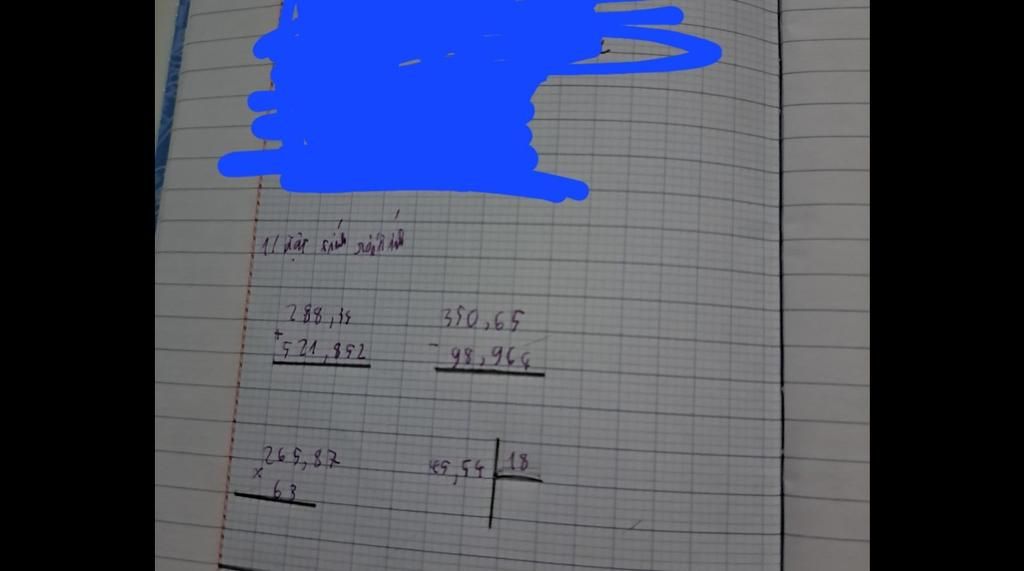 1/ đặt tính rồi tính
288,34 350,65
+ -
521,852 98,964
265,87 45,54 18
x
63